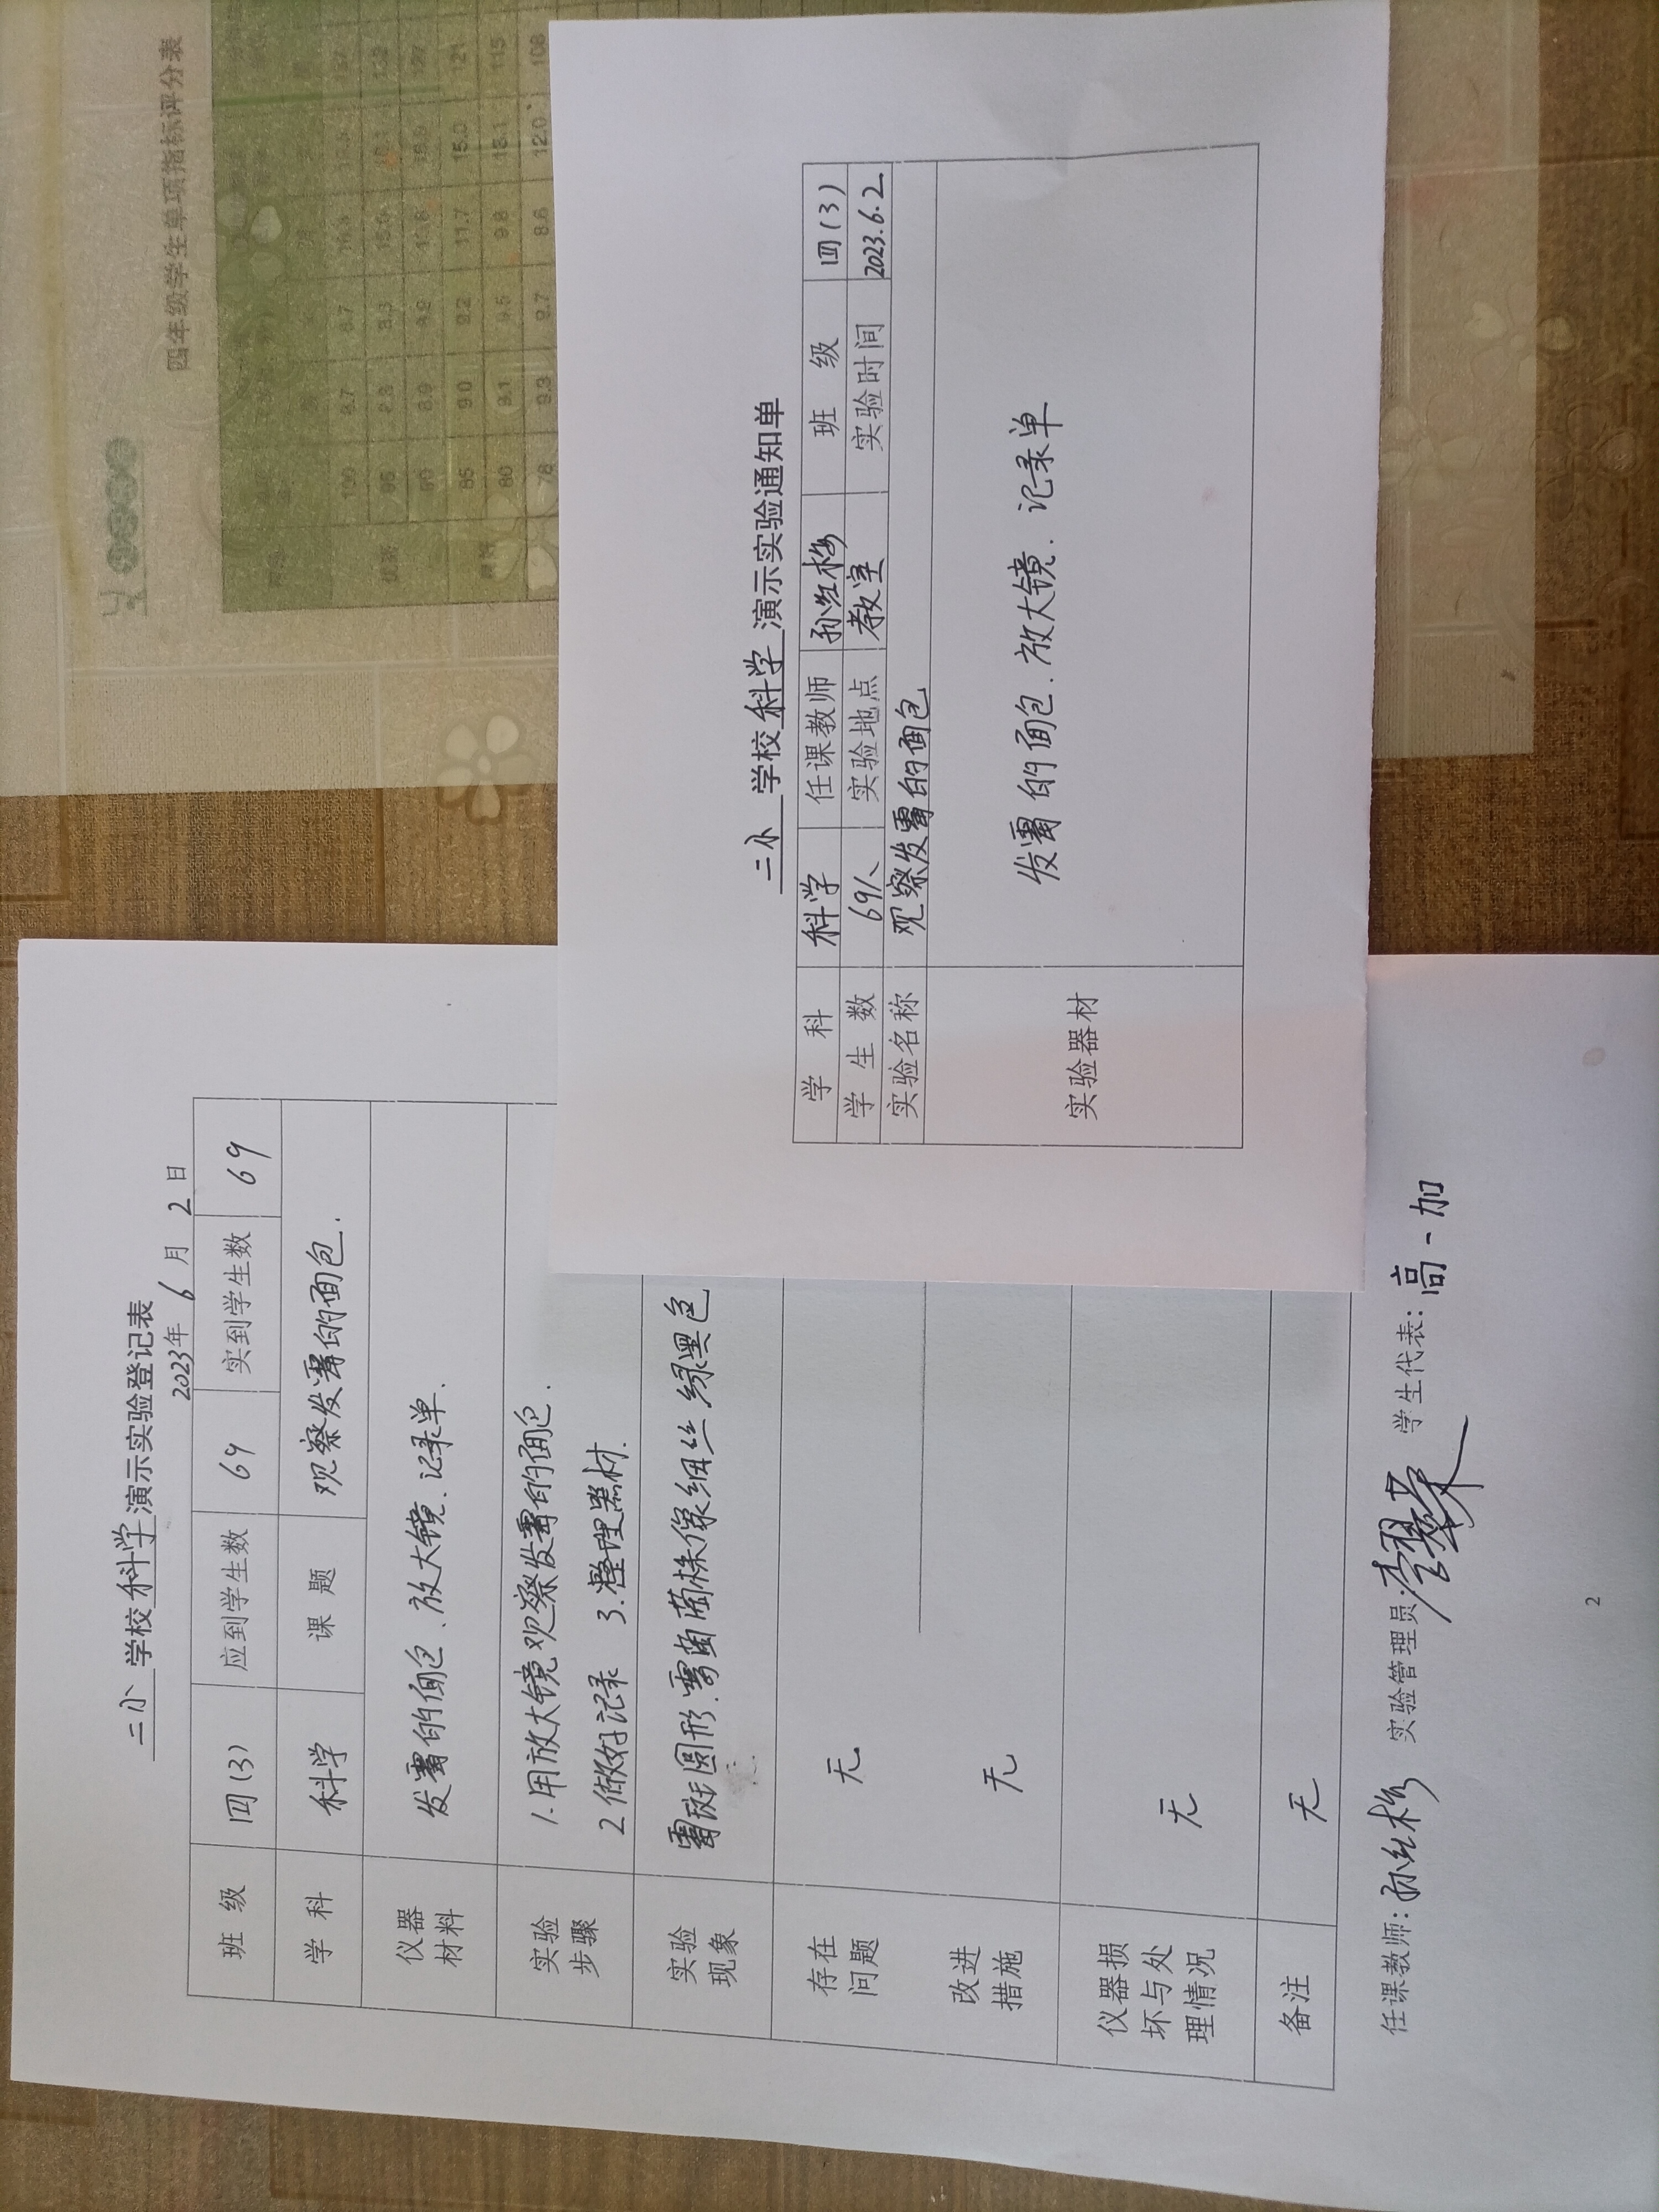 二小 学校 科学 演示实验登记表
2023年 6 月 2 日
班 级 四(3) 应到学生数 69 实到学生数 69
学 科 科学 课 题 观察发霉的面包.
仪器材料 发霉的面包、放大镜、记录单.
实验步骤 1.用放大镜观察发霉的面包.
2.做好记录 3.整理器材.
实验现象 霉斑圆形.霉菌菌株像细丝 绿黑色
存在问题 无
改进措施 无
仪器损坏与处理情况 无
备注 无
任课教师: 孙红梅 实验管理员: 学生代表: 高一加
2
二小 学校 科学 演示实验通知单
学 科 科学 任课教师 孙红梅 班 级 四(3)
学 生 数 69人 实验地点 教室 实验时间 2023.6.2
实验名称 观察发霉的面包
实验器材 发霉的面包、放大镜、记录单
四年级学生单项指标评分表
100 9.7
9.0 9.2 11.7 15.0 121
80 9.1 9.5 9.8 115
78 9.3 9.7 8.6 12.0 108